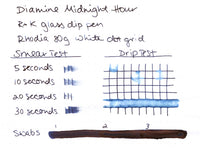 Diamine Midnight Hour
R+K glass dip pen
Rhodia 80g White dot grid
Smear Test Drip Test
5 seconds
10 seconds
20 seconds
30 seconds
1 2 3
Swabs